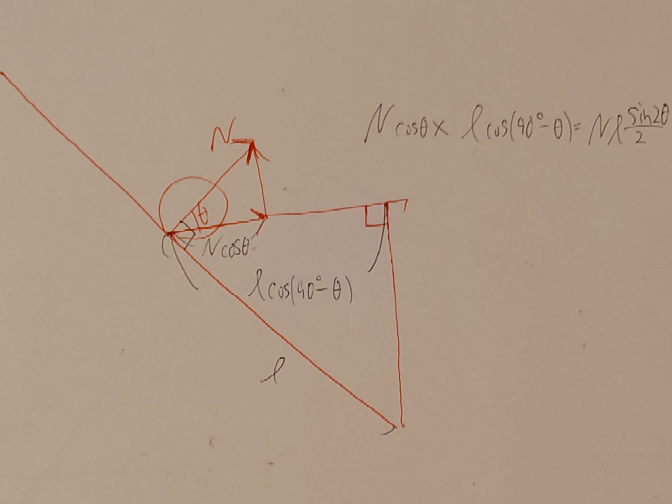 N cosθ × l cos(90°-θ) = Nl sin2θ/2
N
θ
N cosθ
l cos(90°-θ)
l